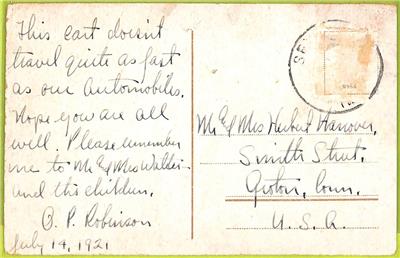 This cart doesn't
travel quite as fast
as our automobiles.
Hope you are all
well. Please remember
me to Mr & Mrs
and the children.
B. P. Robinson
July 14, 1921
Mr & Mrs Herbert Hanover,
Smith Street,
Groton, Conn.
U. S. A.